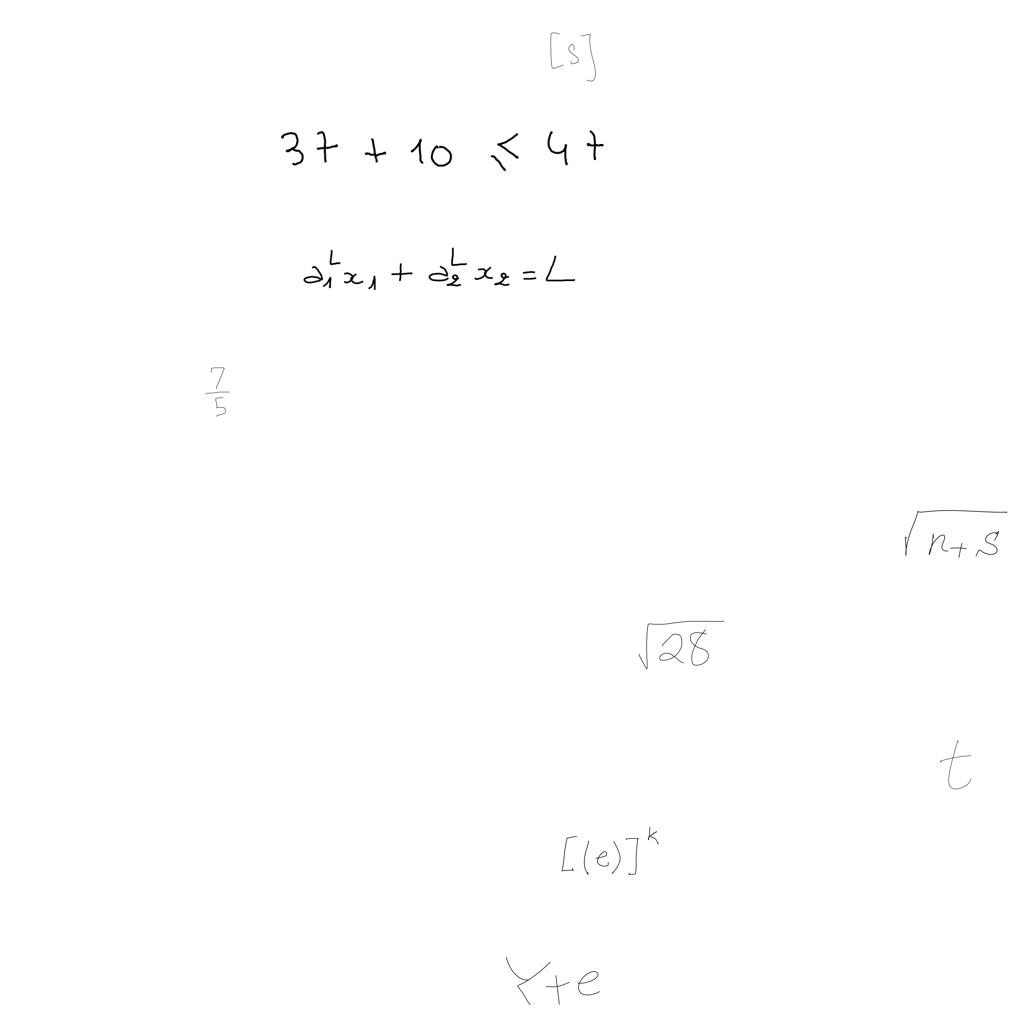 [s]
37 + 10 ⩽ 47
a₁ᴸx₁ + a₂ᴸx₂ = L
7/5
√(n+s)
√28
t
[(e)]ᵏ
Y+e